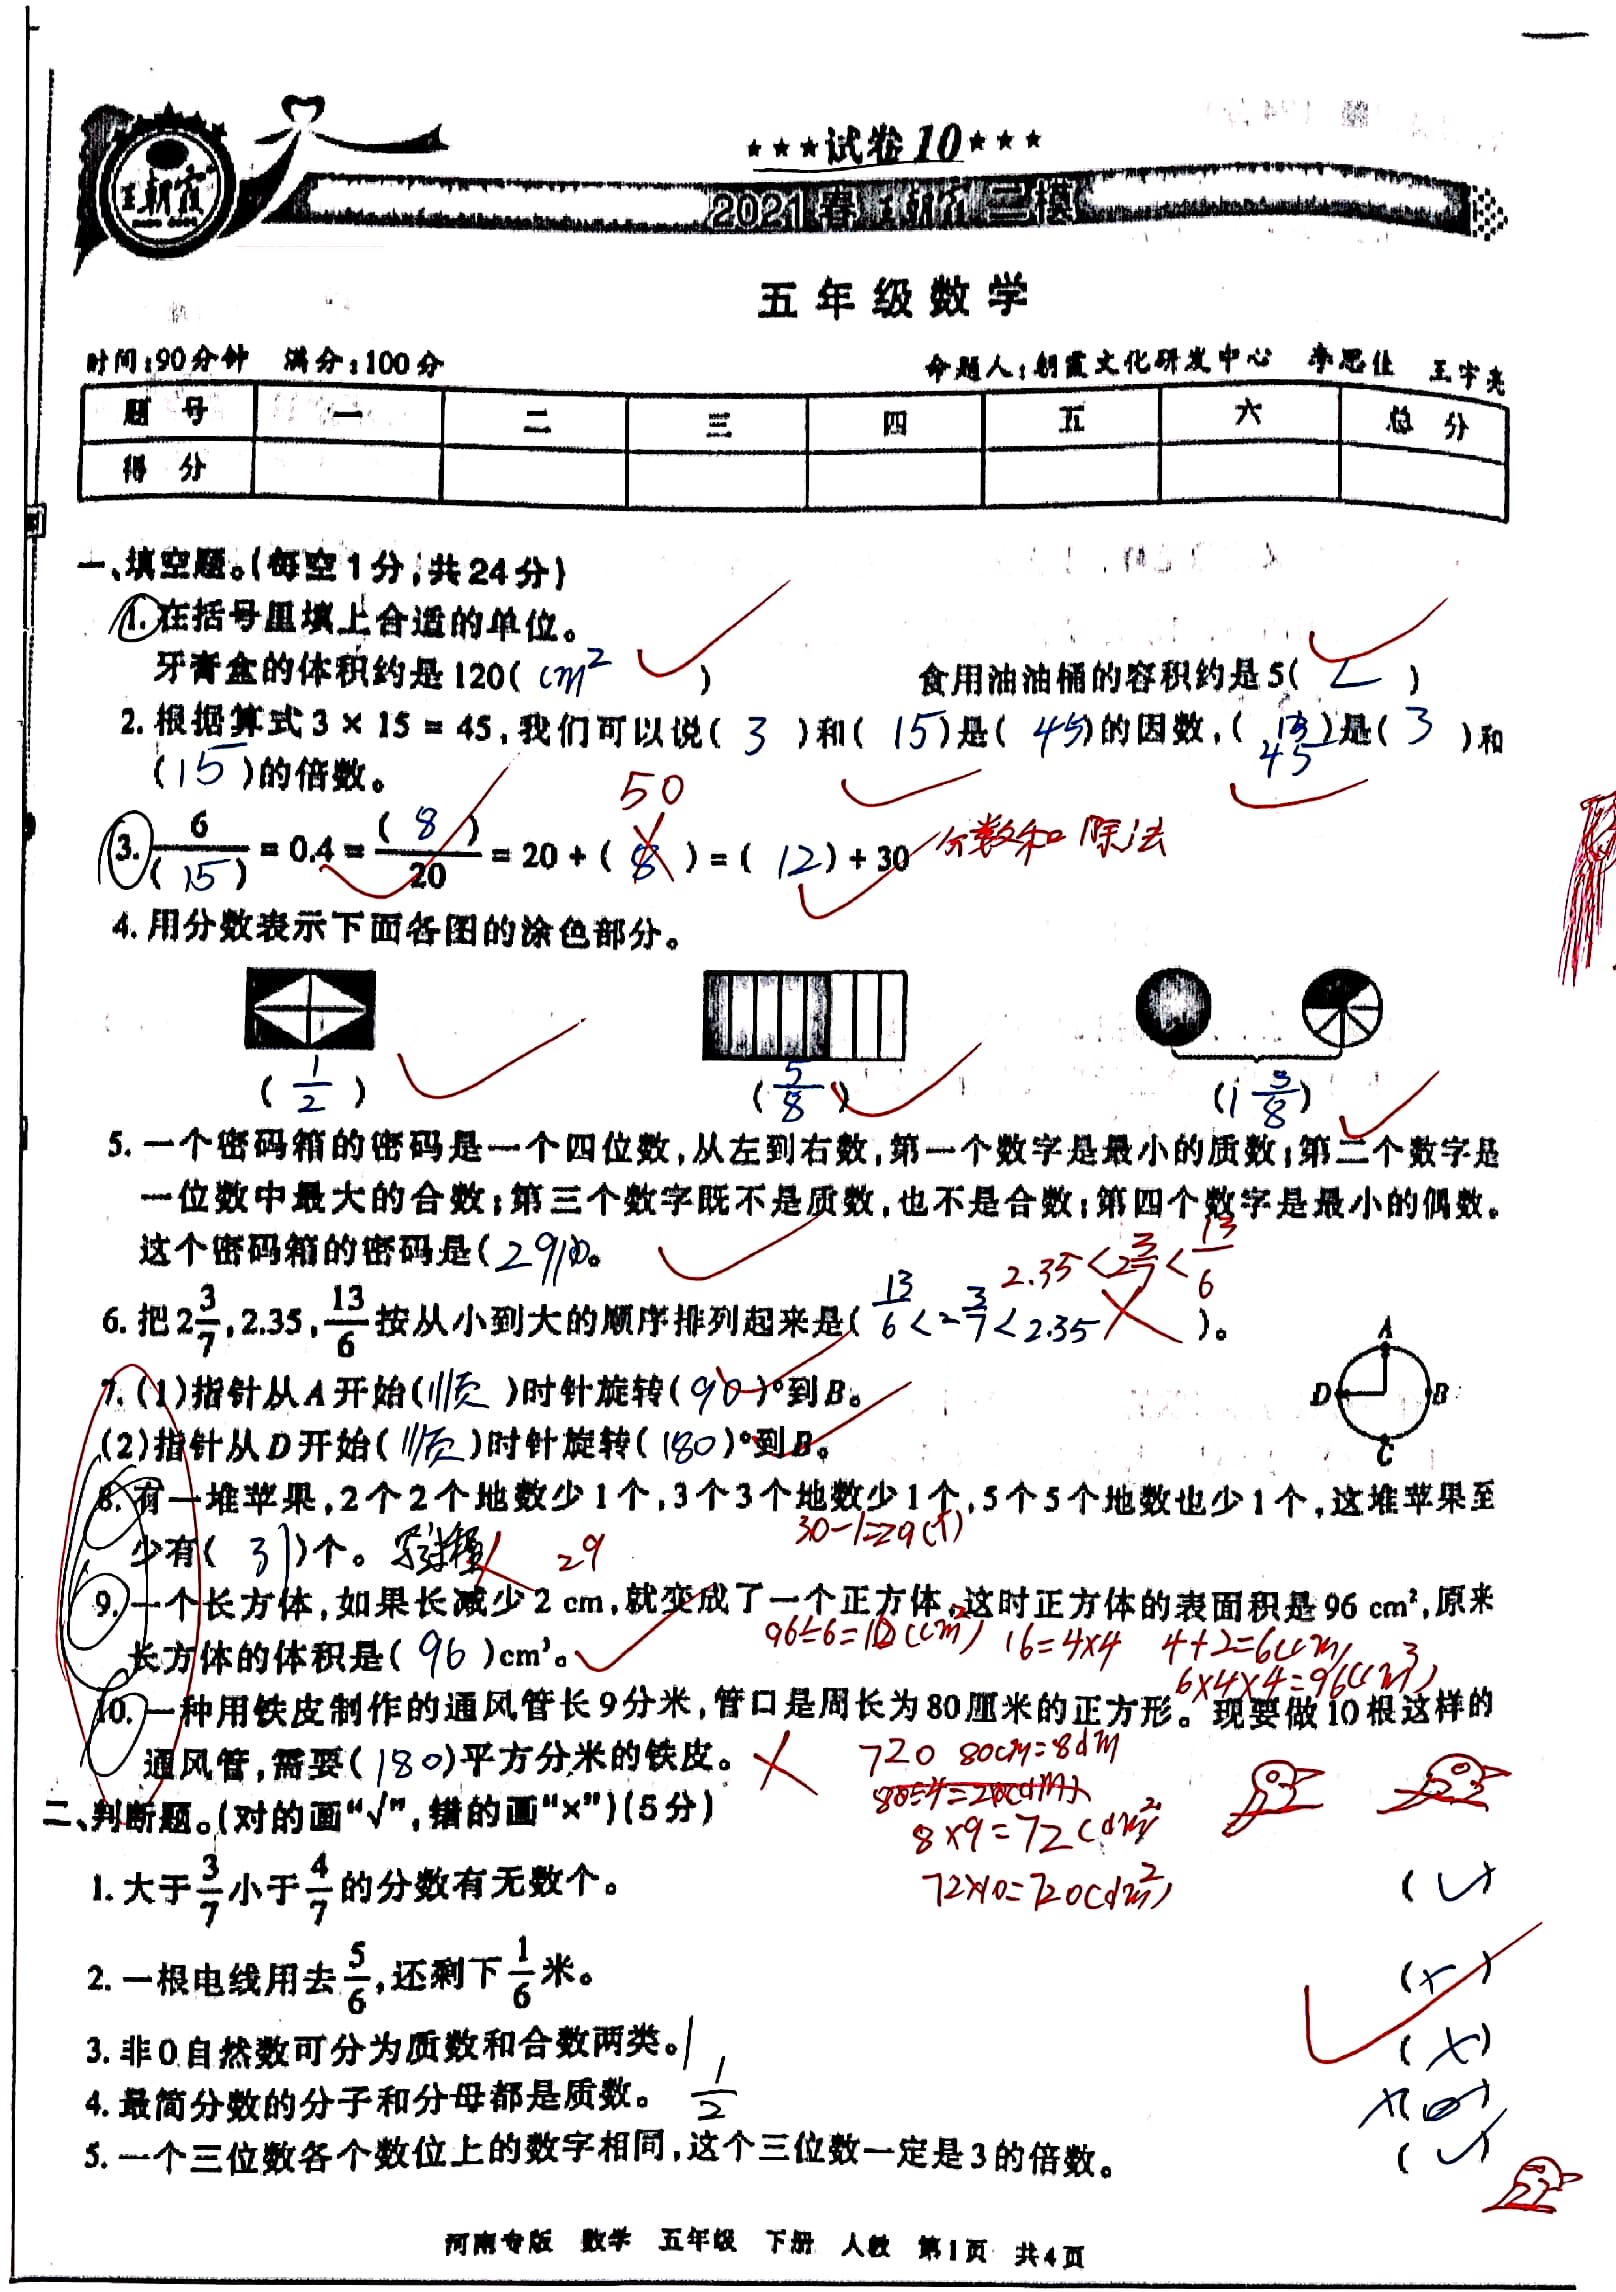 王朝霞
★★★试卷10★★★
2021春王朝霞二模
五年级数学
时间:90分钟 满分:100分 命题人:朝霞文化研发中心 李思佳 王宇亮
题号 一 二 三 四 五 六 总分
得分
一、填空题。(每空1分,共24分)
1. 在括号里填上合适的单位。
牙膏盒的体积约是120( cm² ) 食用油油桶的容积约是5( L )
2. 根据算式3×15=45,我们可以说( 3 )和( 15 )是( 45 )的因数,( 45 )是( 3 )和
( 15 )的倍数。
50
3. 6/( 15 ) = 0.4 = ( 8 )/20 = 20 ÷ ( 8 ) = ( 12 ) ÷ 30 分数和除法
4. 用分数表示下面各图的涂色部分。
( 1/2 ) ( 5/8 ) ( 1 3/8 )
5. 一个密码箱的密码是一个四位数,从左到右数,第一个数字是最小的质数;第二个数字是
一位数中最大的合数;第三个数字既不是质数,也不是合数;第四个数字是最小的偶数。
这个密码箱的密码是( 2910 )。
2.35<2 3/7<13/6
6. 把2 3/7,2.35,13/6按从小到大的顺序排列起来是( 13/6<2 3/7<2.35 )。
7. (1)指针从A开始( 顺 )时针旋转( 90 )°到B。
(2)指针从D开始( 顺 )时针旋转( 180 )°到B。
A
D B
C
8. 有一堆苹果,2个2个地数少1个,3个3个地数少1个,5个5个地数也少1个,这堆苹果至
少有( 31 )个。 29 30-1=29(个)
9. 一个长方体,如果长减少2 cm,就变成了一个正方体,这时正方体的表面积是96 cm²,原来
长方体的体积是( 96 )cm³。 96÷6=16(cm²) 16=4×4 4+2=6(cm)
6×4×4=96(cm³)
10. 一种用铁皮制作的通风管长9分米,管口是周长为80厘米的正方形。现要做10根这样的
通风管,需要( 180 )平方分米的铁皮。 720 80cm=8dm
80÷4=20(dm)
8×9=72(dm²)
72×10=720(dm²)
二、判断题。(对的画“√”,错的画“×”)(5分)
1. 大于3/7小于4/7的分数有无数个。 ( √ )
2. 一根电线用去5/6,还剩下1/6米。 ( × )
3. 非0自然数可分为质数和合数两类。 1 ( × )
4. 最简分数的分子和分母都是质数。 1/2 ×( )
5. 一个三位数各个数位上的数字相同,这个三位数一定是3的倍数。 ( √ )
河南专版 数学 五年级 下册 人教 第1页 共4页